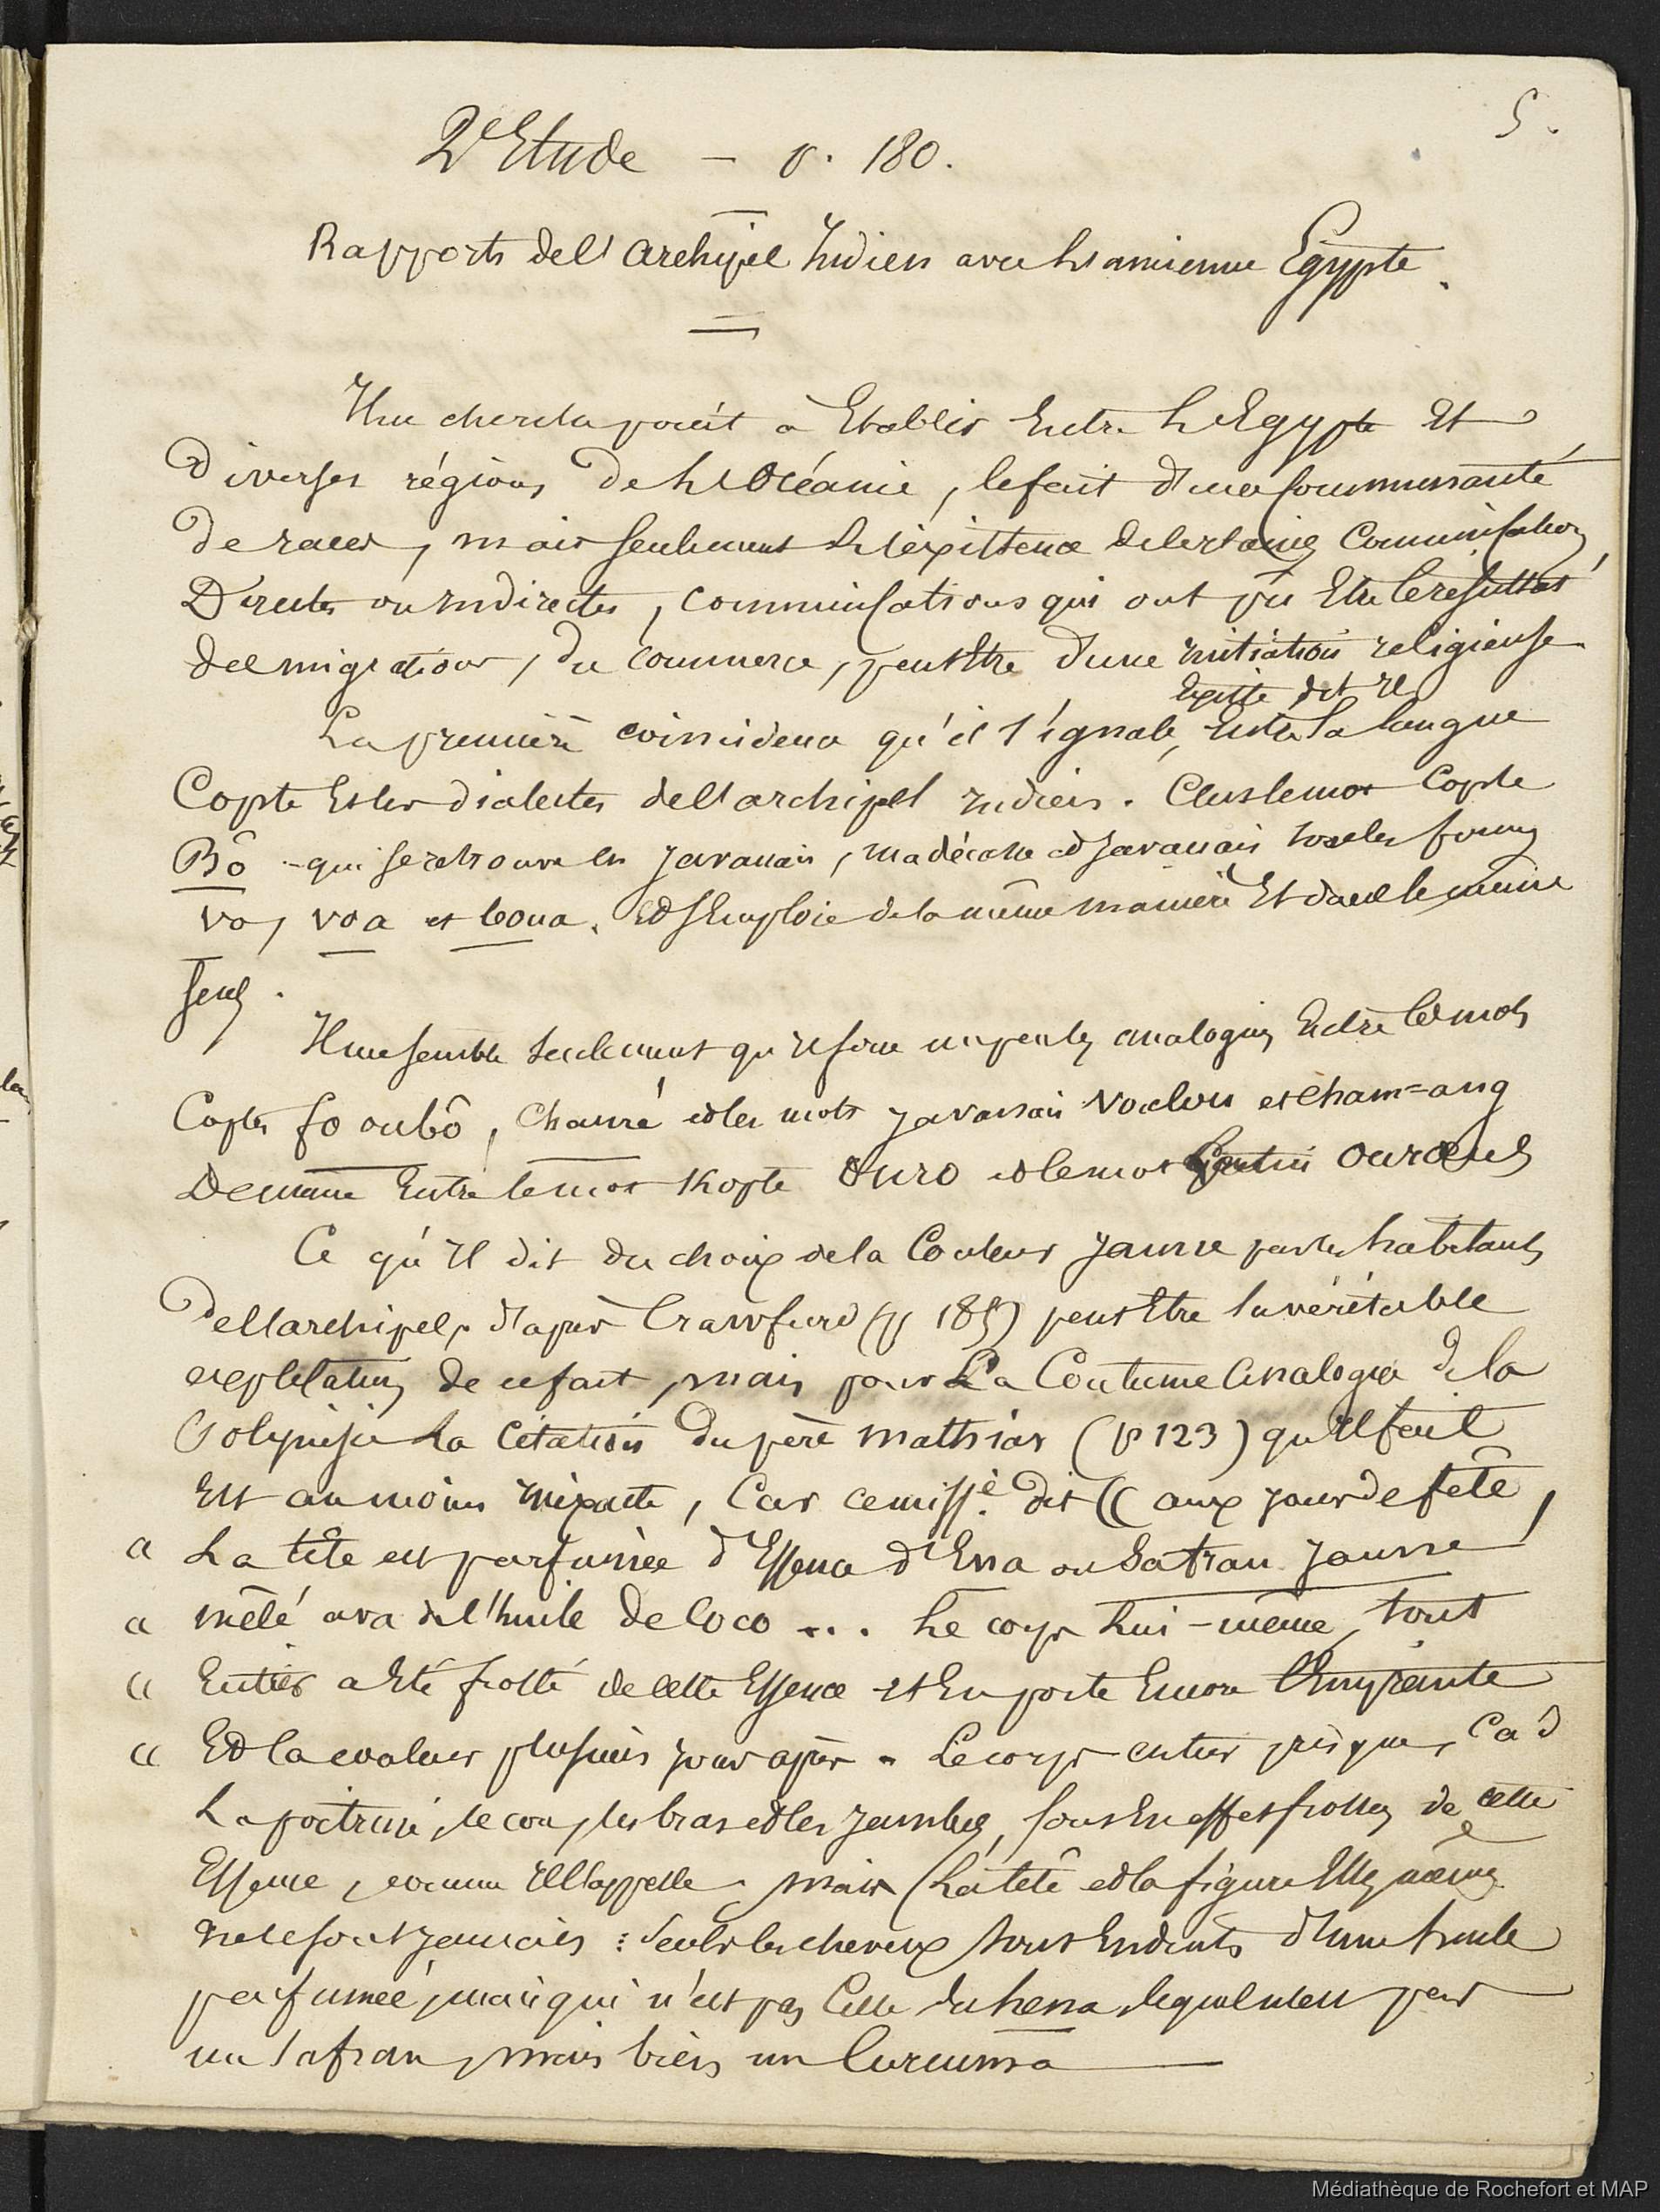 5.
2e Etude – p. 180.
Rapports de l'archipel Indien avec l'ancienne Egypte.
Il ne cherche point à Etablir Entre l'Egypte Et
diverses régions de l'Océanie, le fait d'une communauté
de races, mais seulement l'éxistence de certaines communications
Directes ou indirectes, communications qui ont pû Etre le résultat
de migrations, du commerce, peut Etre d'une initiation religieuse
existe dit il
La première coincidence qu'il signale, Entre la langue
Copte Et les dialectes de l'archipel indien. C'est le mot Copte
Bô – qui se retrouve en javanais, madécasse et javanais sous les formes
vo, voa et boua. Et s'Emploie de la même manière Et dans le même
sens.
Il me semble seulement qu'il force un peu les analogies Entre les mots
Coptes fo oubô, chamé et les mots javanais et cham=ang
De même Entre le mot Kopte Ouro et le mot
Ce qu'il dit du choix de la Couleur jaune par les habitants
de l'archipel, d'après Crawfurd (p 185) peut Etre la véritable
explication de ce fait, mais pour La Coutume analogue de la
Polynésie La Citation du père Mathias (p 123) qu'il fait
Est au moins inexacte, Car ce missre. dit « aux jours de fête,
« La tête est parfumée d'Essence d'Ena ou Safran jaune
« mêlé avec de l'huile de coco ... Le corps lui-même, tout
« Entier a Eté frotté de cette Essence et En porte Encore l'Empreinte
« Et la couleur plusieurs jours après – Le corps entier presque, c a d
La poitrine, le cou, les bras et les jambes, sont En effet frottés de cette
Essence, comme il l'appelle. mais la tête et la figure Elles mêmes
ne le sont jamais : seuls les cheveux sont Enduits d'une huile
parfumée, mais qui n'est pas Celle du hena, lequel n'est pas
un safran, mais bien un Curcuma
Médiathèque de Rochefort et MAP